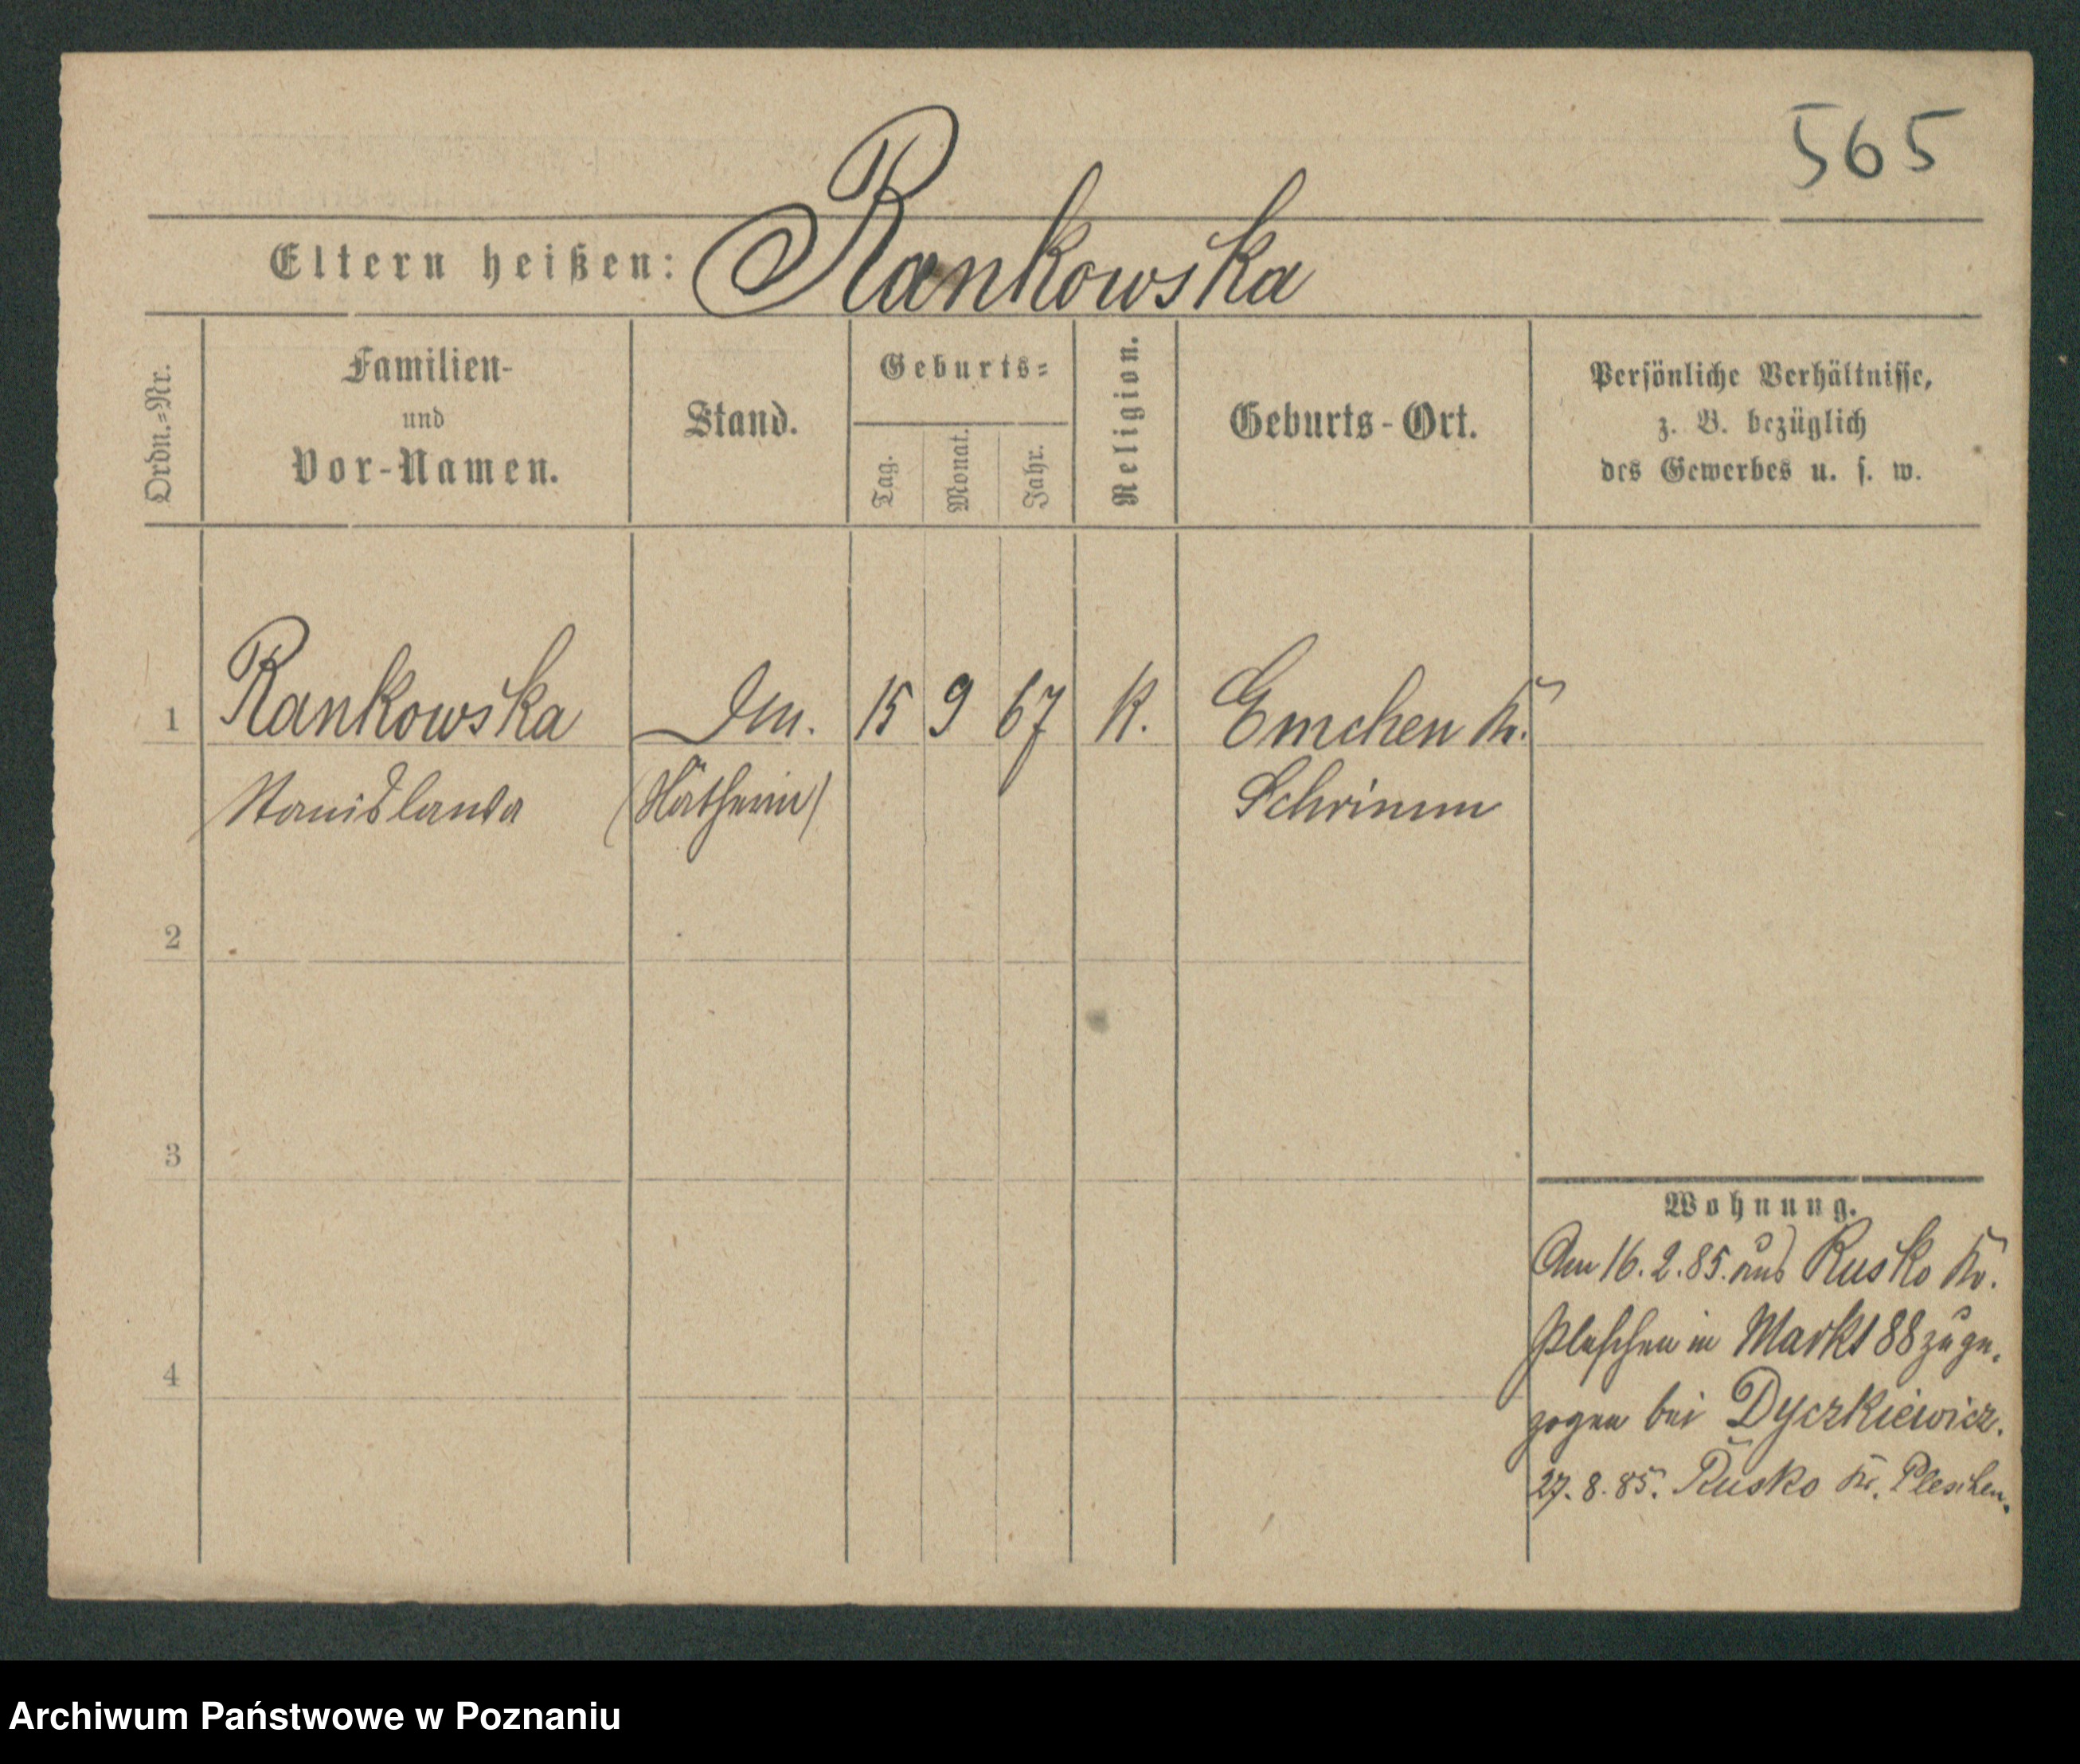 565
Eltern heißen: Rankowska
Ordn.-Nr.
Familien-
und
Vor-Namen.
Stand.
Geburts-
Tag.
Monat.
Jahr.
Religion.
Geburts-Ort.
Persönliche Verhältnisse,
z. B. bezüglich
des Gewerbes u. s. w.
1 Rankowska 15 9 67 K. Emchen Kr.
Stanislawa (Nätherin) Schrimm
2
3
4
Wohnung.
Am 16.2.85. aus Rusko Kr.
Pleschen in Markt 88 zuge-
zogen bei Dyczkiewicz.
27.8.85. Rusko Kr. Pleschen.
Archiwum Państwowe w Poznaniu